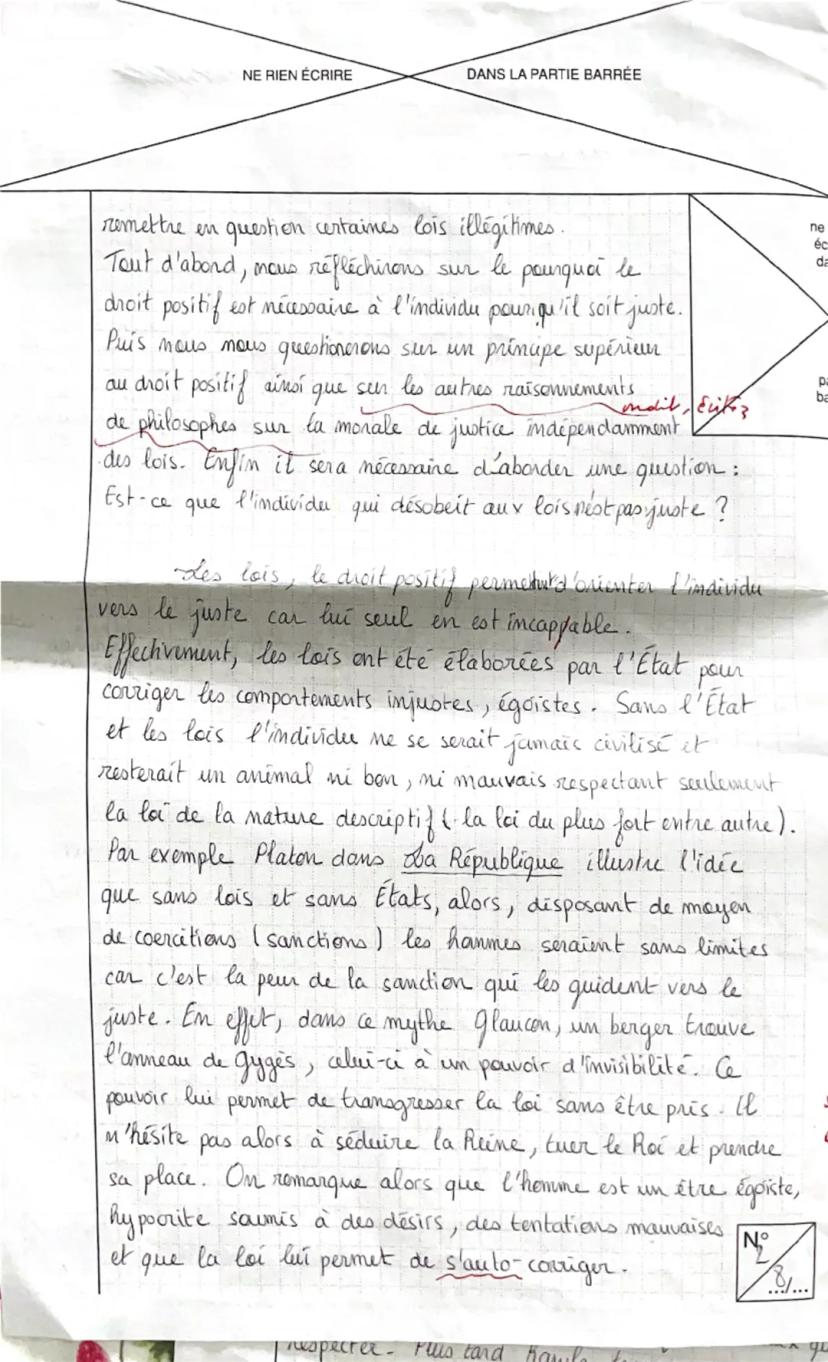 NE RIEN ÉCRIRE DANS LA PARTIE BARRÉE
remettre en question certaines lois illégitimes.
Tout d'abord, nous réfléchirons sur le pourquoi le
droit positif est nécessaire à l'individu pour qu'il soit juste.
Puis nous nous questionerons sur un principe supérieur
au droit positif ainsi que sur les autres raisonnements
de philosophes sur la morale de justice indépendamment
des lois. Enfin il sera nécessaire d'aborder une question :
Est-ce que l'individu qui désobeit aux lois n'est pas juste ?
Les lois, le droit positif permettent d'orienter l'individu
vers le juste car lui seul en est incappable.
Effectivement, les lois ont été élaborées par l'État pour
corriger les comportements injustes, égoïstes. Sans l'État
et les lois l'individu ne se serait jamais civilisé et
resterait un animal ni bon, ni mauvais respectant seulement
la loi de la nature descriptif (la loi du plus fort entre autre).
Par exemple Platon dans La République illustre l'idée
que sans lois et sans États, alors, disposant de moyen
de coercitions (sanctions) les hommes seraient sans limites
car c'est la peur de la sanction qui les guident vers le
juste. En effet, dans ce mythe Glaucon, un berger trouve
l'anneau de Gygès, celui-ci à un pouvoir d'invisibilité. Ce
pouvoir lui permet de transgresser la loi sans être pris. Il
n'hésite pas alors à séduire la Reine, tuer le Roi et prendre
sa place. On remarque alors que l'homme est un être égoïste,
hypocrite soumis à des désirs, des tentations mauvaises
et que la loi lui permet de s'auto-corriger.
N° 2/8
respecter. Plus tard